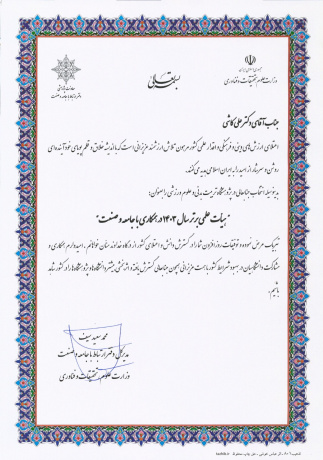 بسمه تعالی
جمهوری اسلامی ایران
وزارت علوم، تحقیقات و فناوری
جناب آقای دکتر علی کاشی
اعتلای ارزش‌های دینی و فرهنگی و اقتدار علمی کشور مرهون تلاش ارزشمند عزیزانی است که با اندیشه خلاق و قلم پویای خود آینده‌ای
روشن و سرشار از امید را به ایران اسلامی هدیه می‌کنند.
بدینوسیله انتخاب جنابعالی در پژوهشگاه تربیت بدنی و علوم ورزشی را به عنوان:
"هیأت علمی برتر سال ۱۴۰۳ در همکاری با جامعه و صنعت"
تبریک عرض نموده و توفیقات روزافزون شما را در گسترش دانش و اعتلای کشور از درگاه خداوند منان خواهانم. امیدوارم همکاری و
مشارکت دانشگاهیان در بهبود شرایط کشور با همت عزیزانی همچون جنابعالی گسترش یافته و اثربخشی بیشتر دانشگاه‌ها و پژوهشگاه‌ها را در کشور شاهد
باشیم.
محمد سعید سیف
مدیرکل دفتر ارتباط با جامعه و صنعت
وزارت علوم، تحقیقات و فناوری